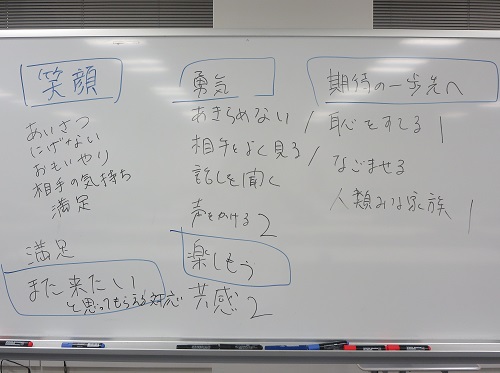 笑顔
あいさつ
にげない
おもいやり
相手の気持ち
満足
満足
また来たい
と思ってもらえる対応
勇気
あきらめない /
相手をよく見る /
話しを聞く
声をかける 2
楽しもう
共感 2
期待の一歩先へ
恥をすてる 1
なごませる
人類みな家族 1